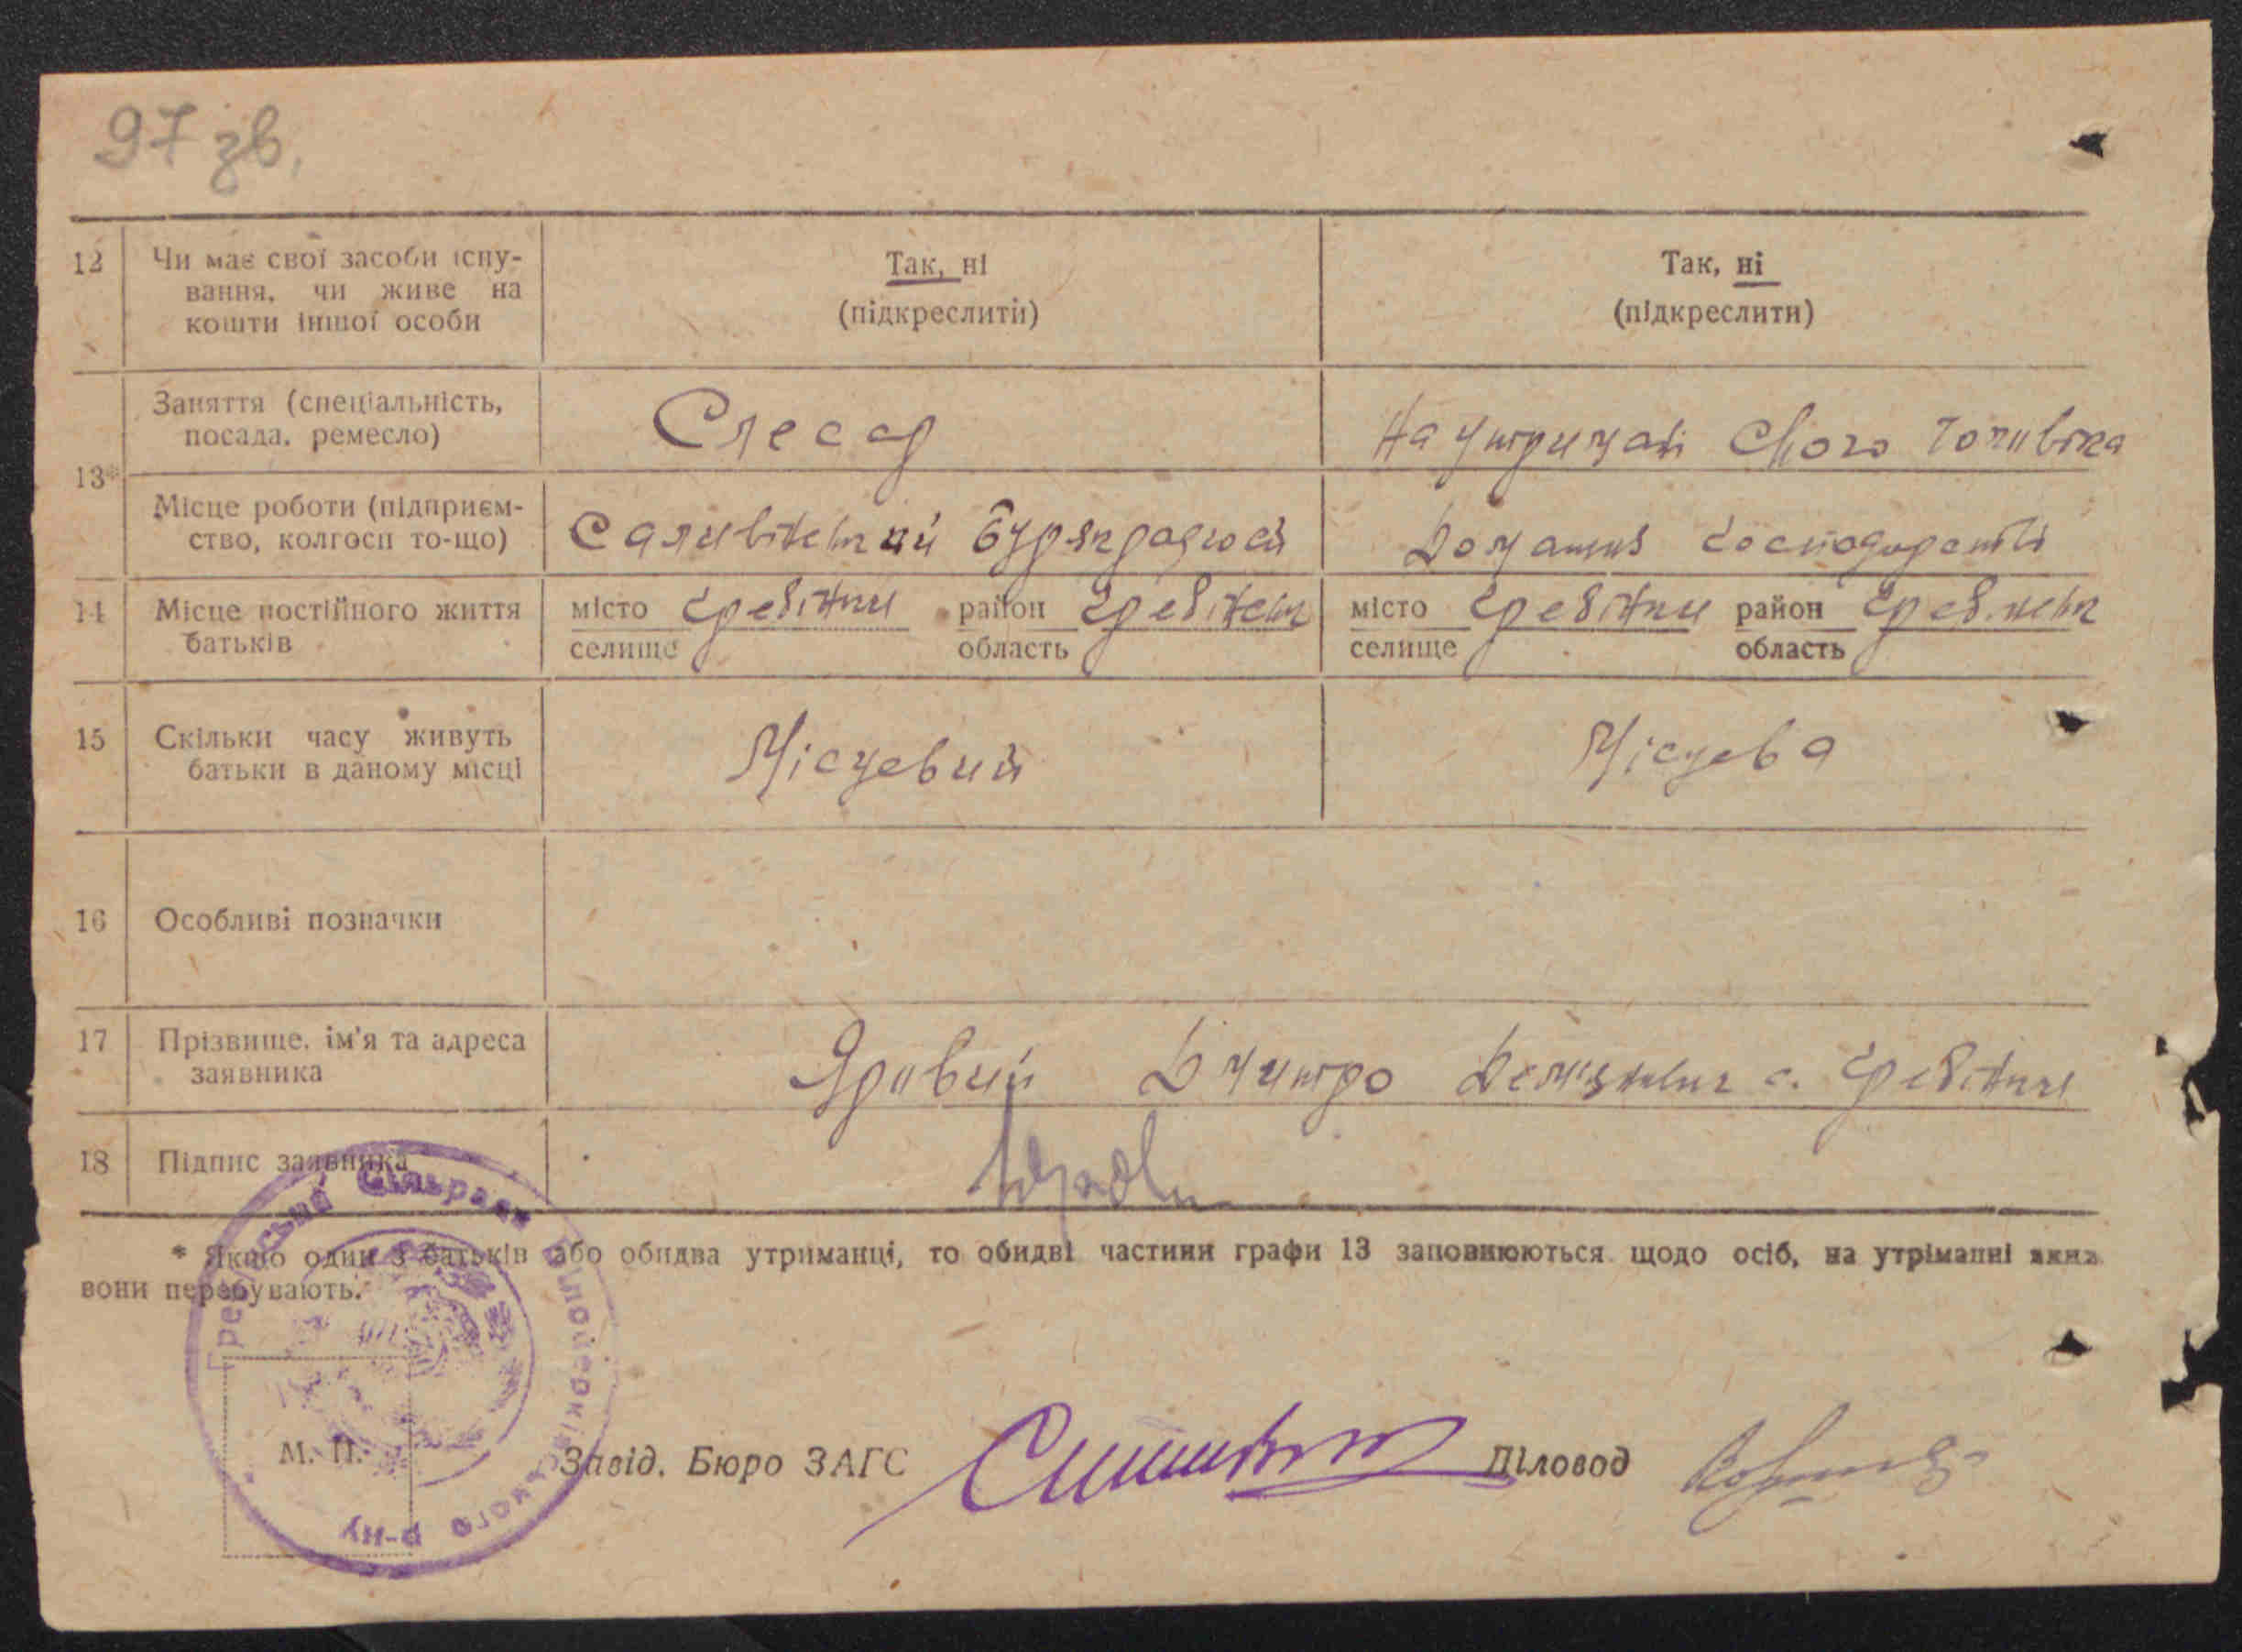 97 зв.
12 Чи має свої засоби існу-
вання, чи живе на
кошти іншої особи
Так, ні
(підкреслити)
Так, ні
(підкреслити)
13* Заняття (спеціальність,
посада, ремесло)
Слесар
На утриманні свого чоловіка
Місце роботи (підприєм-
ство, колгосп то-що)
бурякрадгосп
Домашнє господарство
14 Місце постійного життя
батьків
місто Гребінки район Гребінськ
селище область
місто Гребінки район Греб.
селище область
15 Скільки часу живуть
батьки в даному місці
Місцевий
Місцева
16 Особливі позначки
17 Прізвище, ім'я та адреса
заявника
Яровий Дмитро с. Гребінки
18 Підпис заявника
* Якщо один з батьків або обидва утриманці, то обидві частини графи 13 заповнюються щодо осіб, на утріманні яких
вони перебувають.
М. П.
Завід. Бюро ЗАГС
Діловод
сільрада Білоцерківського р-ну